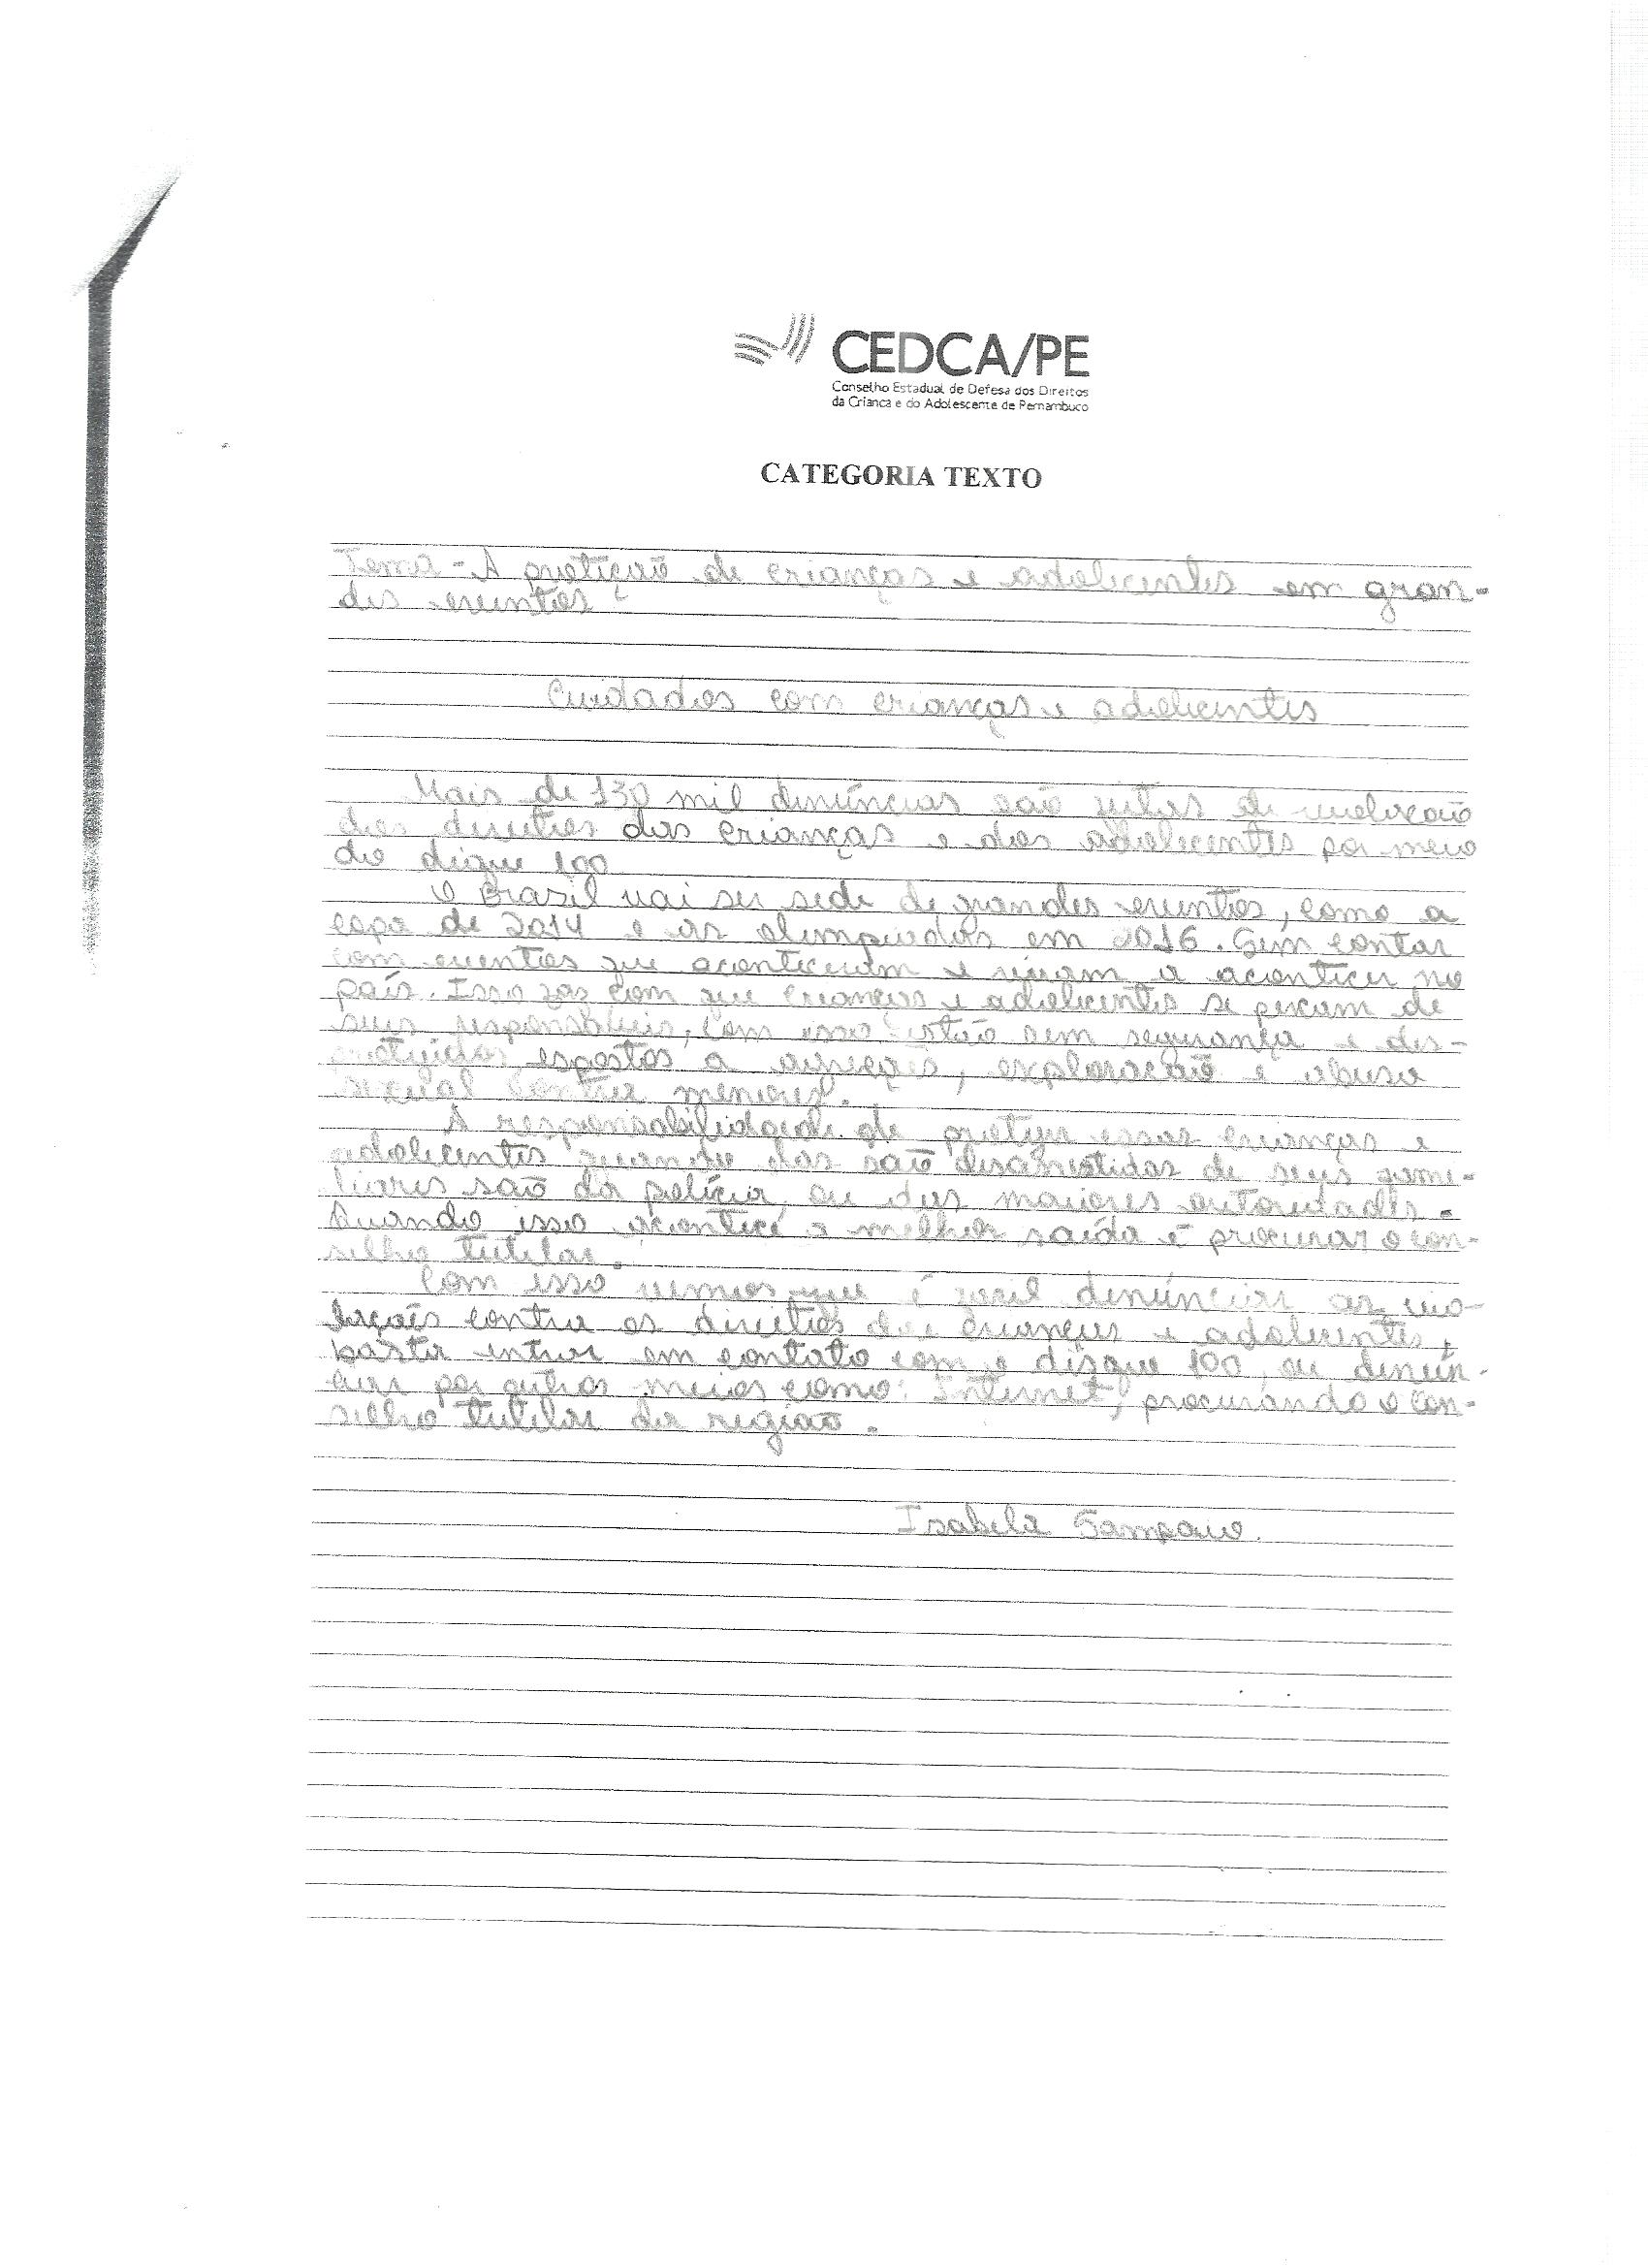 CEDCA/PE
Conselho Estadual de Defesa dos Direitos
da Criança e do Adolescente de Pernambuco
CATEGORIA TEXTO
Tema - A proteição de crianças e adolecentes em gran-
des eventos
Cuidados com crianças e adolecentes
Mais de 130 mil denúncias são feitas de violocão
dos direitos das crianças e dos adolecentes por meio
do disque 100
O Brasil vai ser sede de grandes eventos, como a
copa de 2014 e as olimpiedas em 2016. Sem contar
com eventos que aconteceram e viram a acontecer no
país. Isso faz com que crianças e adolecentes se percam de
seus responsáveis, com isso estão sem segurança e des-
protegidos, espostos a agreções, exploracão e abuso
sexual contra menores.
A responsabilidade de proteger essas crianças e
adolecentes quando são de seus fami-
liares são da polícia, ou das maiores autoridades.
Quando isso acontece a melhor saída é procurar o con-
selho tutelar.
Com isso vemos que é facil denúnciar as vio-
laçoẽs contra os direitos das crianças e adolecentes,
basta entrar em contato com o disque 100, ou denún-
ciar por outros meios como: Internet, procurando o con-
selho tutelar da região.
Isabela Sampaio.